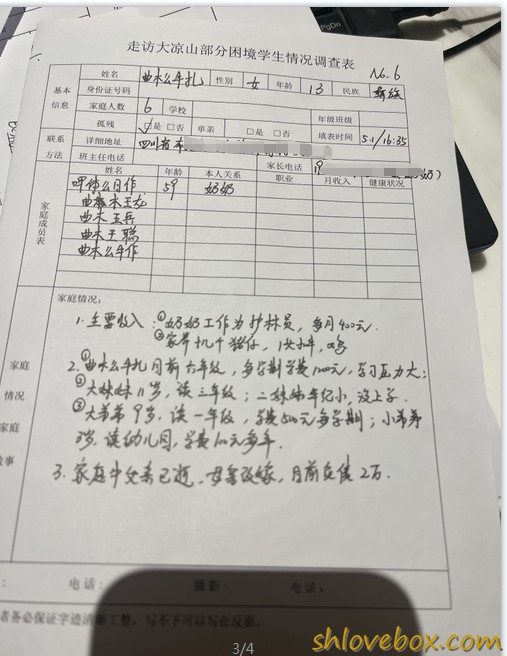 走访大凉山部分困境学生情况调查表
No.6
基本信息
姓名 曲木么牛扎 性别 女 年龄 13 民族 彝族
身份证号码
家庭人数 6 学校 年级班级
孤残 ☑是 □否 单亲 □是 □否 填表时间 5.1/16:35
联系方法
详细地址 四川省
班主任电话 家长电话
家庭成员表
姓名 年龄 本人关系 职业 月收入 健康状况
59 奶奶
曲木王兵
曲木王聪
曲木么牛作
家庭情况:
1. 主要收入:①奶奶工作为护林员,每月400元.
2.①曲木么牛扎目前六年级,每学期学费1200元,学习压力大;
②大妹妹11岁,读三年级;二妹妹年纪小,没上学.
③大弟弟9岁,读一年级,学费500元每学期;小弟弟
3岁,读幼儿园,学费
3. 家庭中父亲已逝,母亲改嫁,目前负债2万.
家庭
情况
家庭
故事
: 电话: 摄影: 电话:
者务必保证字迹清晰工整,写不下可以写在反面。
3/4
shlovebox.com